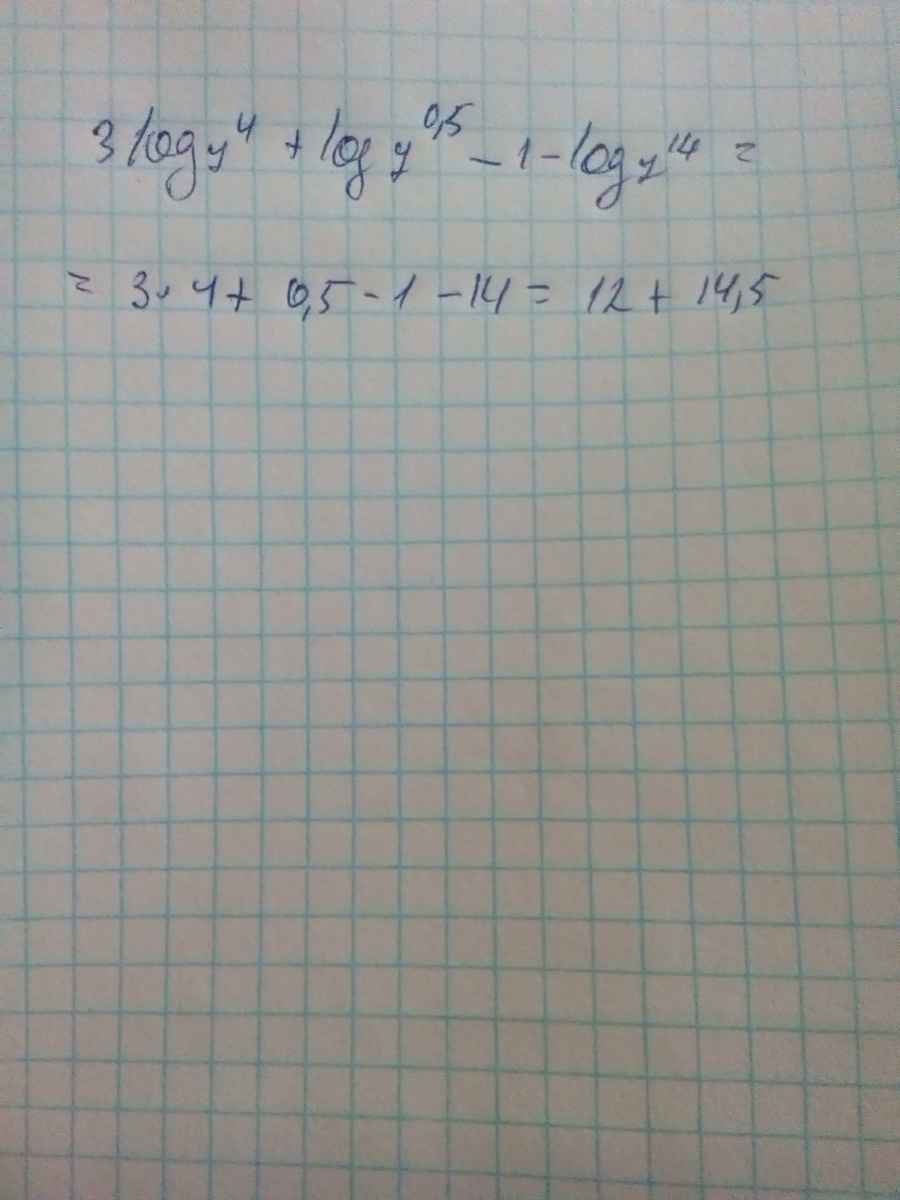 3 log y⁴ + log y⁰,⁵ - 1 - log y¹⁴ =
= 3 · 4 + 0,5 - 1 - 14 = 12 + 14,5